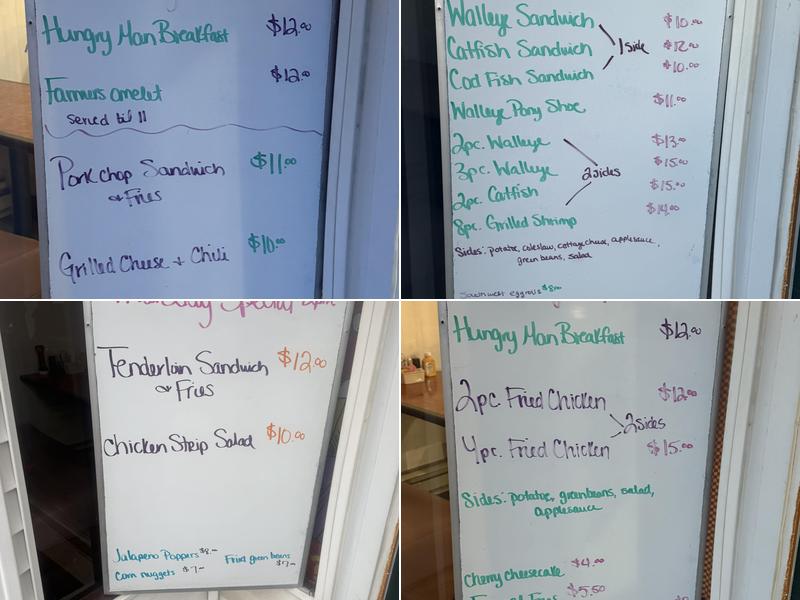 Hungry Man Breakfast $12.00
Farmers omelet $12.00
served til 11
Porkchop Sandwich $11.00
& Fries
Grilled Cheese & Chili $10.00
Walleye Sandwich $10.00
Catfish Sandwich 1 side $12.00
Cod Fish Sandwich $10.00
Walleye Pony Shoe $11.00
2pc. Walleye $13.00
3pc. Walleye 2 sides $15.00
2pc. Catfish $15.00
8pc. Grilled Shrimp $14.00
Sides: potatoe, coleslaw, cottage cheese, applesauce,
green beans, salad
Southwest eggrolls $8.00
Special
Tenderloin Sandwich $12.00
& Fries
Chicken Strip Salad $10.00
Jalapeno Poppers $8.00 Fried green beans
Corn nuggets $7.00 $7.00
Hungry Man Breakfast $12.00
2pc. Fried Chicken $12.00
2 sides
4pc. Fried Chicken $15.00
Sides: potatoe, greenbeans, salad,
applesauce
Cherry cheesecake $4.00
$5.50